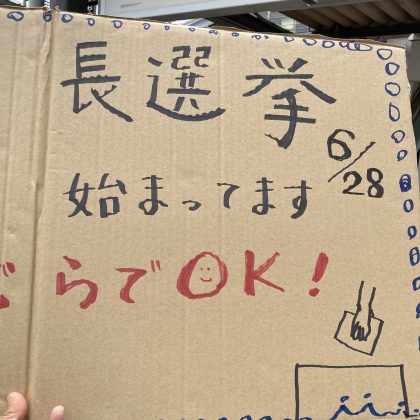 長選挙
6/28
始まってます
らでOK!